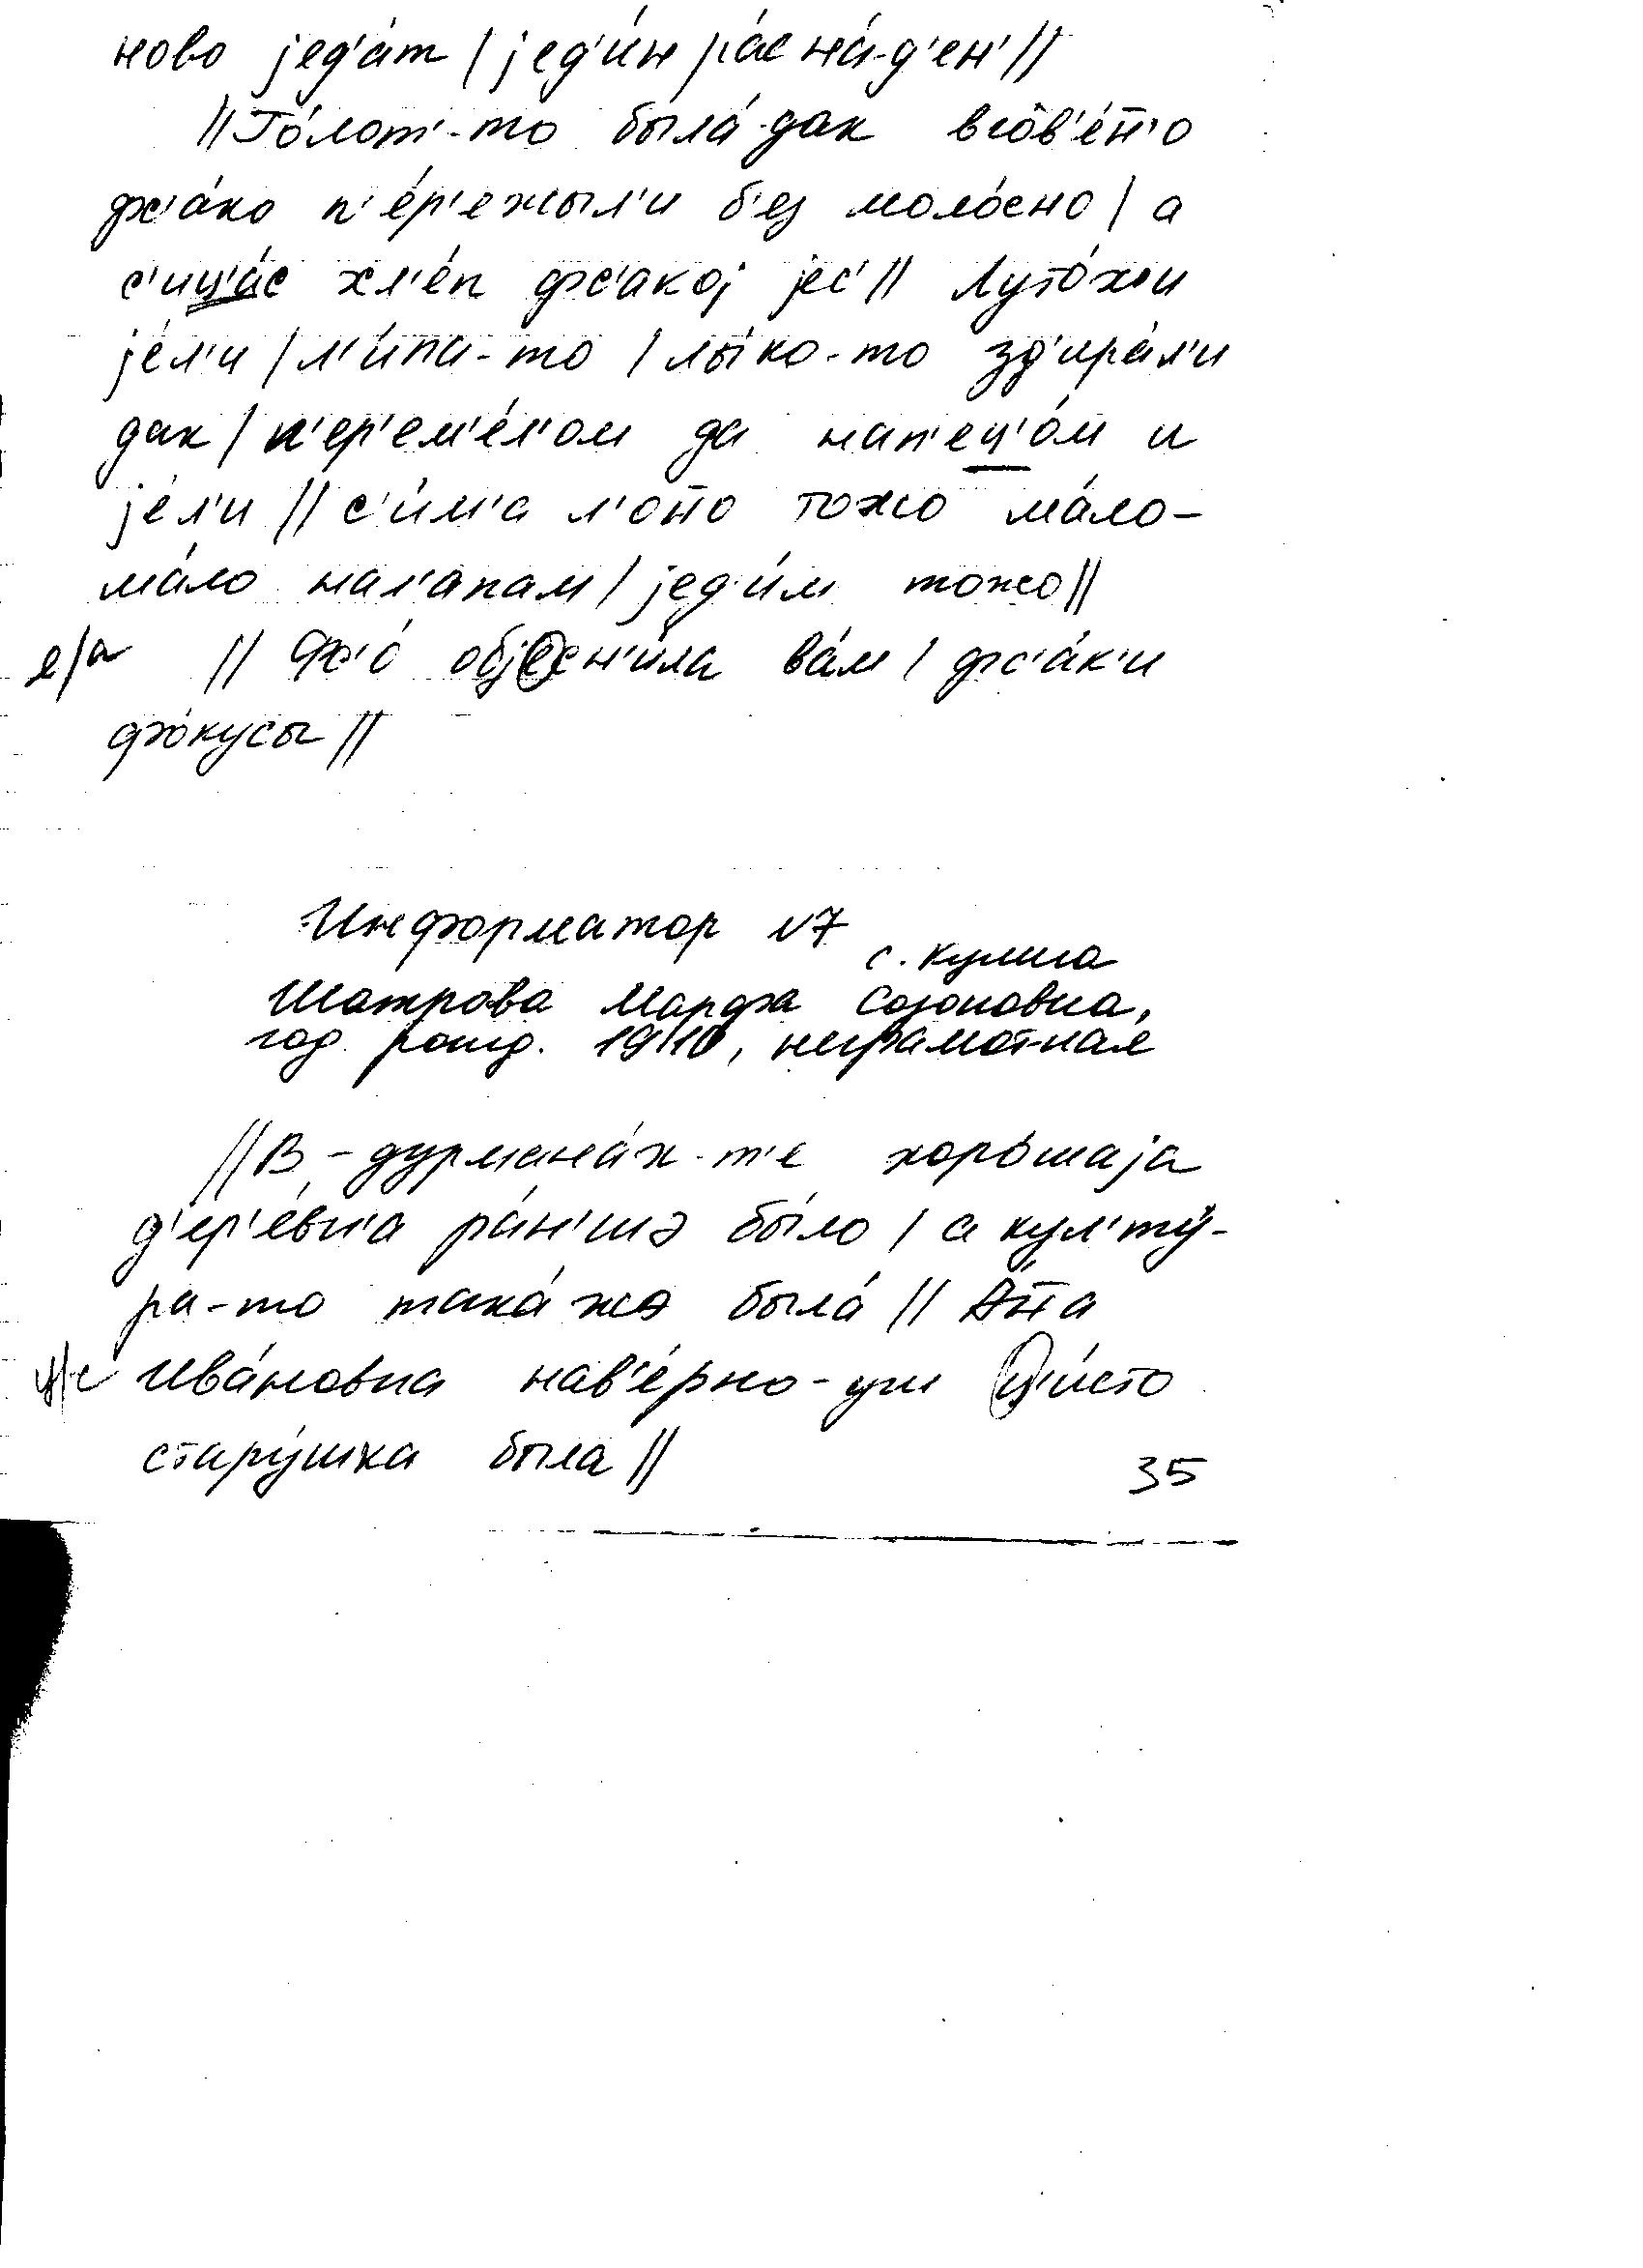 ново jед'а́т | jед'и́н ра́с на́-д'ен' ||
|| Го́лот'-то была́-дак
фс'а́ко п'е́р'ежыл'и б'ез моло́сно | а
с'иц'а́с хл'е́п фс'акоj jес' || Луто́хи
jе́л'и | л'и́па-то | лы́ко-то зд'ира́л'и
дак | п'ер'ем'е́л'ом да нап'ец'о́м и
jе́л'и || с'и́м'а л'о̄но тожо ма́ло-
ма́ло нал'апам | jед'и́м тожо ||
е/а || Фс'о́ обjесн'и́ла ва́м | фс'а́к'и
фо́кусы ||
Информатор №7
с. Кулига
Шатрова Марфа Созоновна,
год. рожд. 1910, неграмотная
|| В-дурмана́х-т'е хоро́шаjа
д'ер'е́вн'а ра́н'шэ бы́ло | а кул'ту́-
ра-то така́ жэ была́ || А́н̄а
ц/с Ива́новна нав'е́рно-уш ц'и́сто
стару́шка была ||
35